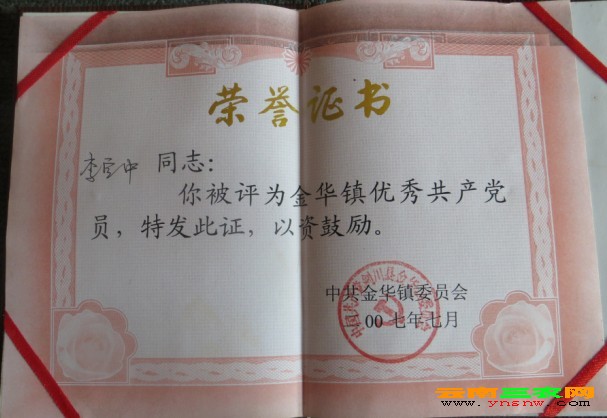 荣誉证书
李宝中 同志：
你被评为金华镇优秀共产党
员，特发此证，以资鼓励。
中共金华镇委员会
00七年七月
云南三农网
www.ynsnw.com